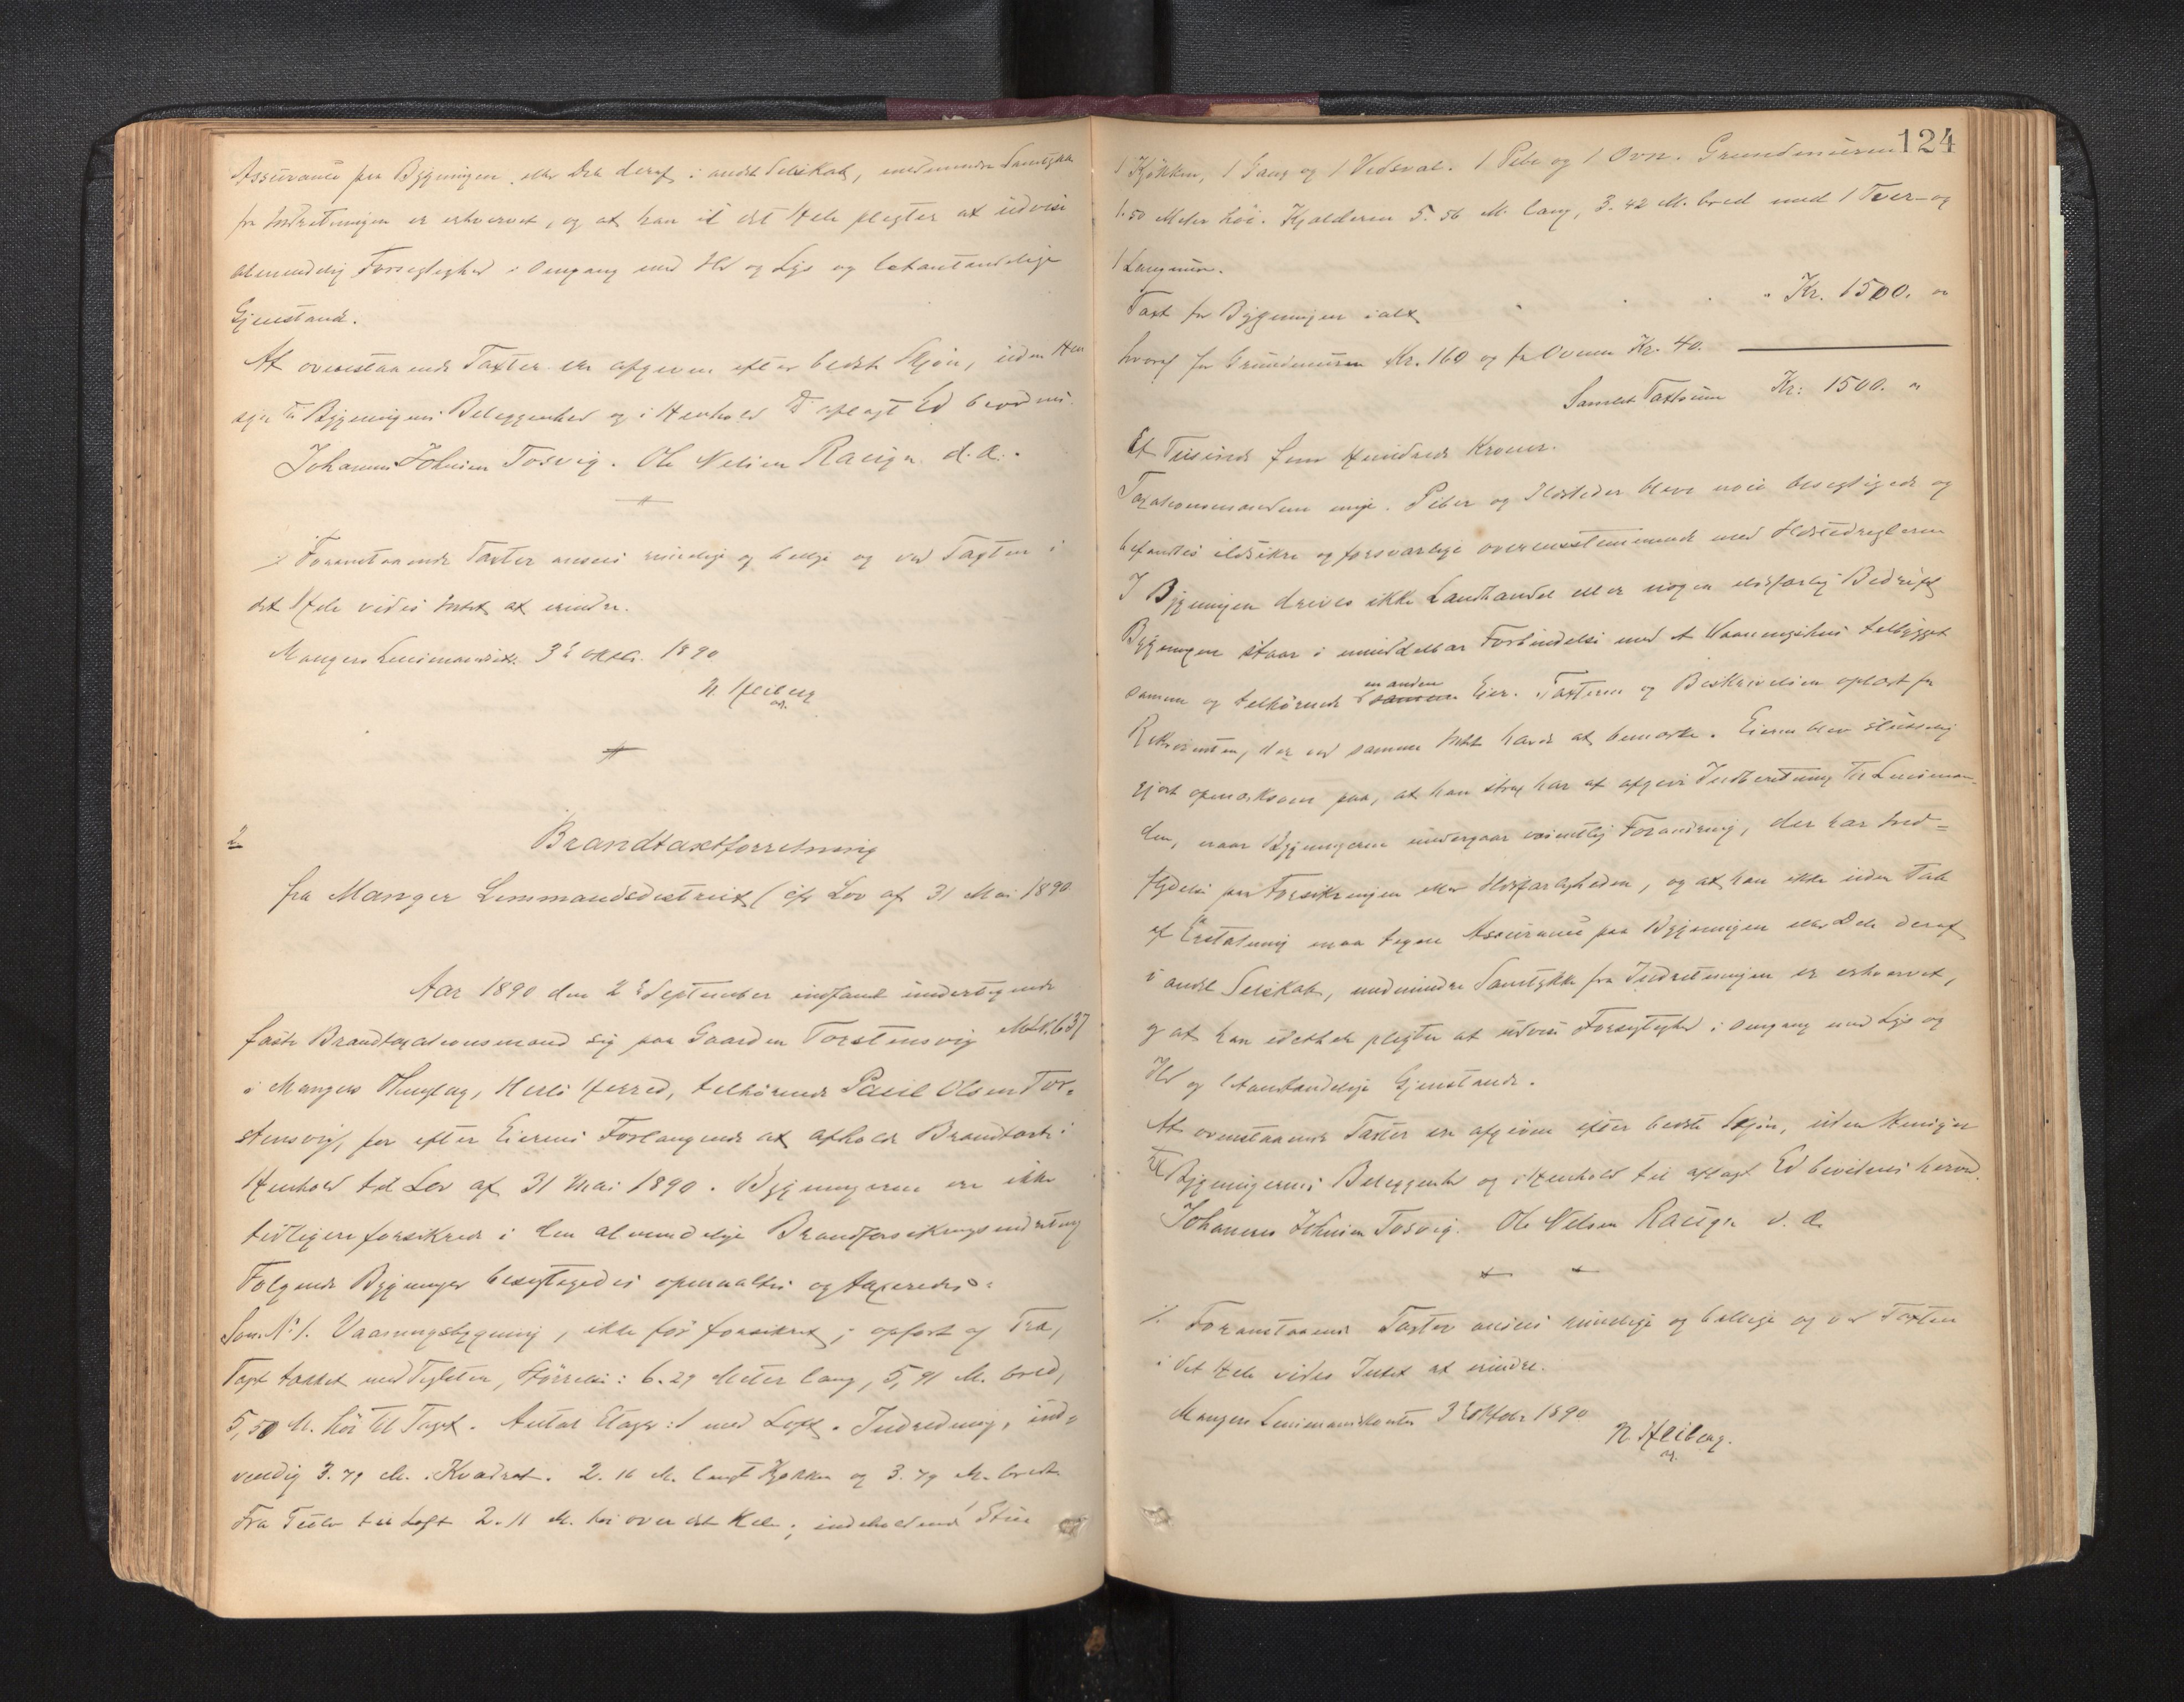 Assurance paa Bygningen eller Del deraf i andet Selskab, medmindre Samtykke
fra Indretningen er erhvervet, og at han i det Hele pligter at udvise
almindelig Forsigtighed i Omgang med Ild og Lys og letantændelige
Gjenstande.
At ovenstaaende Taxter ere afgivne efter bedste Skjøn, uden Hen
syn til Bygningens Beliggenhed og i Henhold til aflagt Ed bevidnes.
Johannes Johnsen Tosvig. Ole Nelsen Raugn d. a.
Foranstaaende Taxter ansees rimelige og billige og ved Taxten i
det Hele vides Intet at erindre.
Mangers Lensmandsk. 3d oktbr. 1890
N. Heiberg
2
Brandtaxtforretning
fra Manger Lensmandsdistrict (cfr Lov af 31 Mai 1890
Aar 1890 den 2d September indfandt undertegnede
faste Brandtaxationsmænd sig paa Gaarden Torstensvig M.L.N. 637
i Mangers Thinglag, Herlø Herred, tilhørende Paul Olsen Tor-
stensvig, for efter Eierens Forlangende at afholde Brandtaxt i
Henhold til Lov af 31 Mai 1890. Bygningerne ere ikke
tidligere forsikrede i den almindelige Brandforsikringsindretning
Følgende Bygninger besigtigedes opmaaltes og taxeredes:
Son. N. 1. Vaaningsbygning, ikke før forsikret; opført af Træ,
Taget tækket med Tegelsten, Størrelse: 6.29 Meter lang, 5,91 M. bred,
5,50 M. høi til Taget. Antal Etager: 1 med Loft. Indredning, ind-
vendig 3.79 M. i Kvadrat. 2.16 M. langt Kjøkken og 3.79 M. bredt.
Fra Gulv til Loft 2.11 M. høi over det Hele; indeholdende 1 Stue
124
1 Kjøkken, 1 Gang og 1 Vedsval. 1 Pibe og 1 Ovn. Grundmuren
1.50 Meter høi. Kjælderen 5.56 M. lang, 3.42 M. bred med 1 Tver- og
1 Langmur.
Taxt for Bygningen ialt Kr. 1500. "
hvoraf for Grundmuren Kr. 160 og for Ovnen Kr. 40.
Samlet Taxtsum Kr: 1500. "
Et Tusinde fem Hundrede Kroner.
Taxationsmændene enige. Piber og Ildsteder bleve nøie besigtigede og
befandtes ildsikre og forsvarlige overensstemmende med Ildstedreglerne
I Bygningen drives ikke Landhandel eller nogen ildsfarlig Bedrift
Bygningen staar i umiddelbar Forbindelse med et Vaaningshus tilbygget
samme og tilhørende en anden Eier. Taxterne og Beskrivelsen oplæst for
Rekvirenten, der ved samme Intet havde at bemærke. Eieren blev sluttelig
gjort opmærksom paa, at han strax har at afgive Indberetning til Lensman-
den, naar Bygningerne undergaar væsentlig Forandring, der har Ind-
flydelse paa Forsikringen eller Ildsfarligheden, og at han ikke uden Tab
af Erstatning maa tegne Assurance paa Bygningen eller Dele deraf
i andet Selskab, medmindre Samtykke fra Indretningen er erhvervet,
og at han idethele pligter at udvise Forsigtighed i Omgang med Lys og
Ild og letantændelige Gjenstande.
At ovenstaaende Taxter ere afgivne efter bedste Skjøn, uden Hensyn
til Bygningernes Beliggenhed og i Henhold til aflagt Ed bevidnes herved.
Johannes Johnsen Tosvig. Ole Nelsen Raugn d. a.
Foranstaaende Taxter ansees rimelige og billige og ved Taxten
i det Hele vides Intet at erindre.
Mangers Lensmandskontor 3d Oktobr 1890
N. Heiberg.